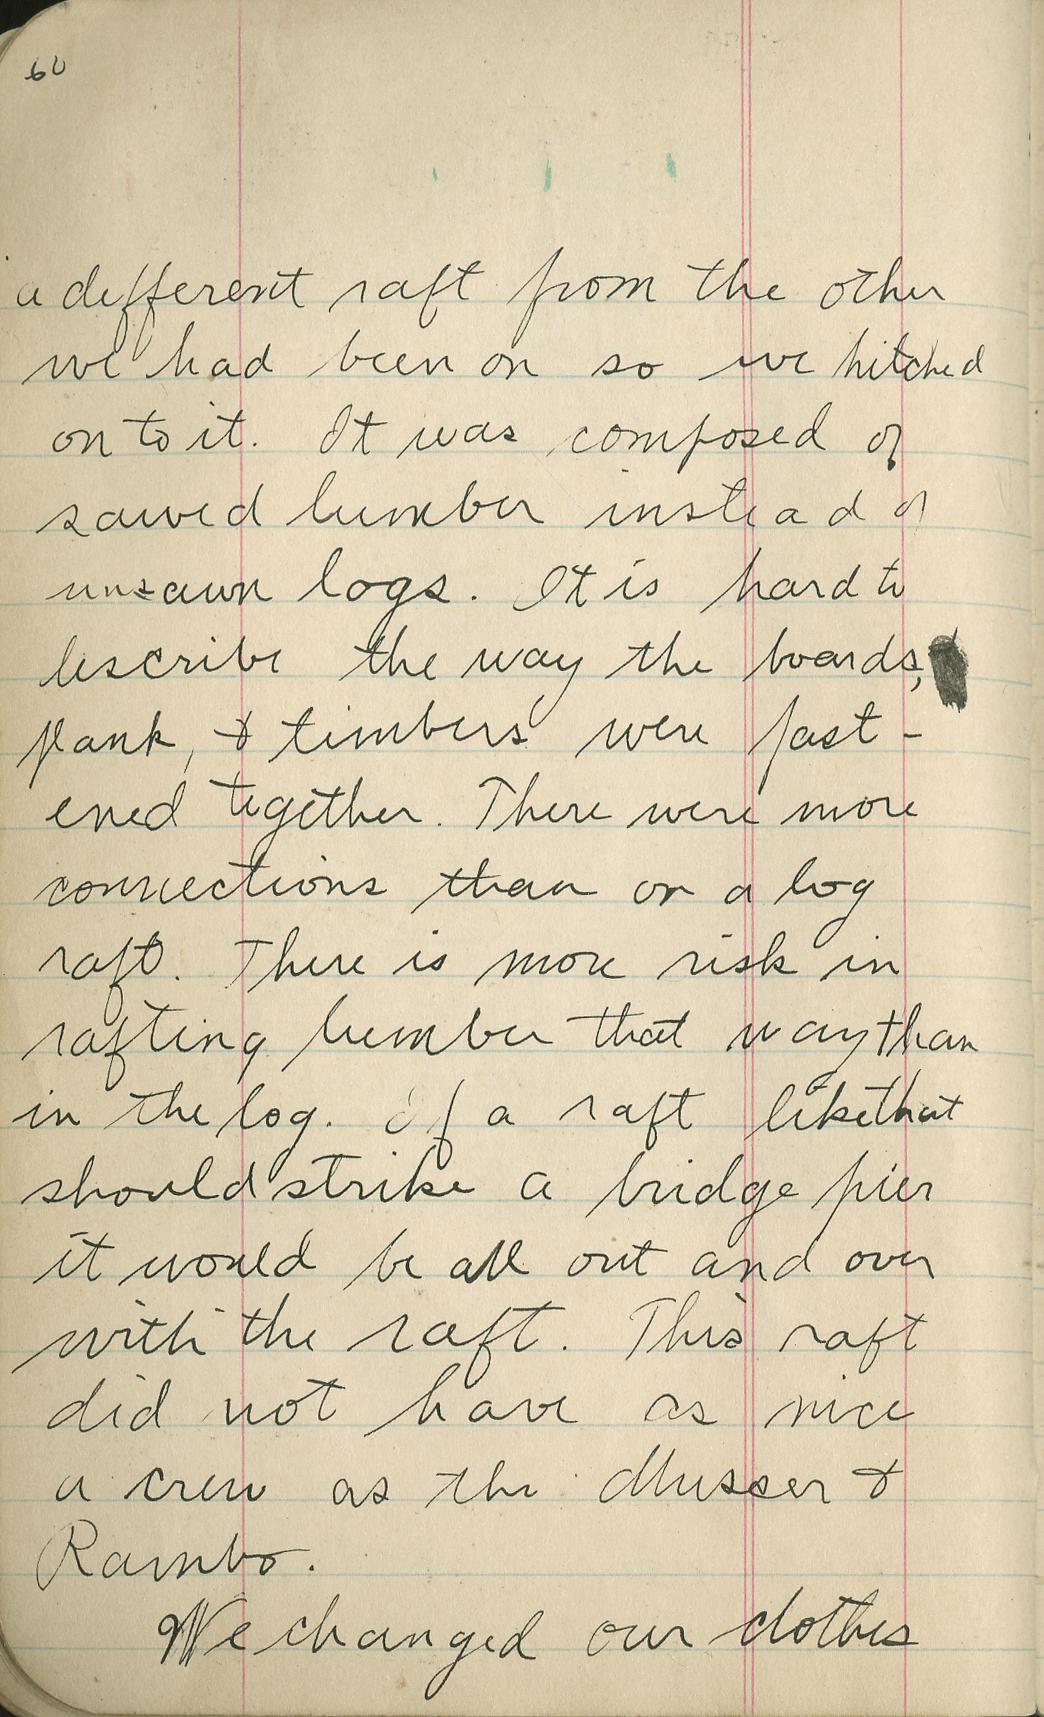 60
a different raft from the other
we had been on so we hitched
on to it. It was composed of
sawed lumber instead of
unsawn logs. It is hard to
describe the way the boards,
plank, & timbers were fast-
ened together. There were more
connections than on a log
raft. There is more risk in
rafting lumber that way than
in the log. If a raft like that
should strike a bridge pier
it would be all out and over
with the raft. This raft
did not have as nice
a crew as the Musser &
Rambo.
We changed our clothes